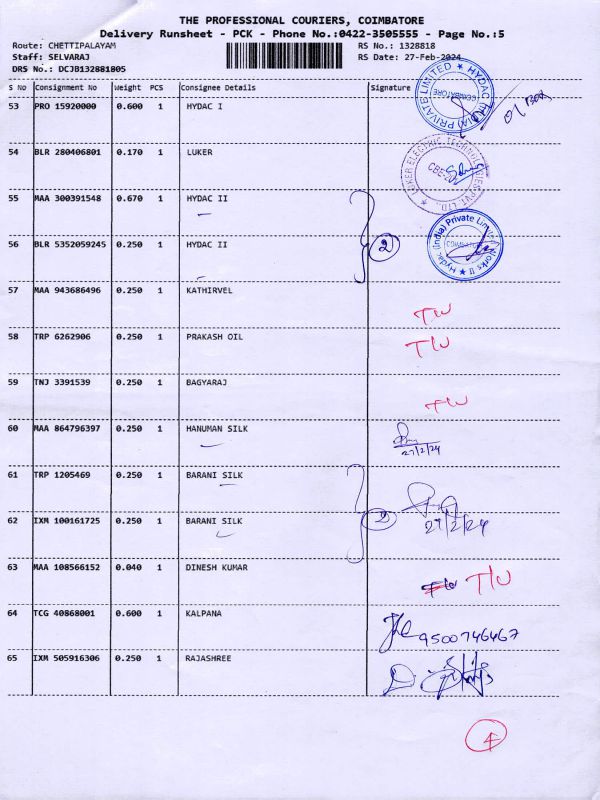 THE PROFESSIONAL COURIERS, COIMBATORE
Delivery Runsheet - PCK - Phone No.:0422-3505555 - Page No.:5
Route: CHETTIPALAYAM RS No.: 1328818
Staff: SELVARAJ RS Date: 27-Feb-2024
DRS No.: DCJB132881805
S No Consignment No Weight PCS Consignee Details Signature
53 PRO 15920000 0.600 1 HYDAC I
HYDAC (INDIA) PRIVATE LIMITED COIMBATORE
54 BLR 280406801 0.170 1 LUKER
LUKER ELECTRIC TECHNOLOGIES PVT. LTD.
55 MAA 300391548 0.670 1 HYDAC II
56 BLR 5352059245 0.250 1 HYDAC II
2
Hydac (India) Private Limited Works II
57 MAA 943686496 0.250 1 KATHIRVEL
T/U
58 TRP 6262906 0.250 1 PRAKASH OIL
T/U
59 TNJ 3391539 0.250 1 BAGYARAJ
T/U
60 MAA 864796397 0.250 1 HANUMAN SILK
27/2/24
61 TRP 1205469 0.250 1 BARANI SILK
62 IXM 100161725 0.250 1 BARANI SILK
2
27/2/24
63 MAA 108566152 0.040 1 DINESH KUMAR
T/U
64 TCG 40868001 0.600 1 KALPANA
9500746467
65 IXM 505916306 0.250 1 RAJASHREE
4